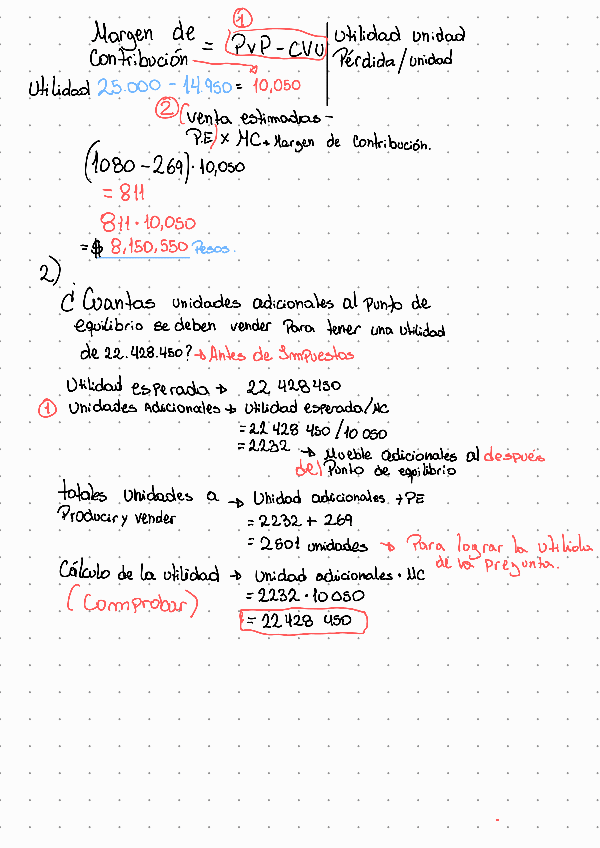 ①
Margen de Contribución = PVP - CVU | Utilidad unidad
Pérdida / unidad
Utilidad 25.000 - 14.950 = 10,050
② (venta estimadas -
P.E) x MC → Margen de Contribución.
(1080 - 269) · 10,050
= 811
811 · 10,050
= $ 8,150,550 Pesos.
2)
¿ Cuantas unidades adicionales al Punto de
equilibrio se deben vender Para tener una utilidad
de 22.428.450? → Antes de Impuestos
Utilidad esperada → 22 428 450
① Unidades Adicionales → Utilidad esperada/MC
= 22 428 450 / 10 050
= 2232 → Mueble adicionales al después
del Punto de equilibrio
totales Unidades a → Unidad adicionales + PE
Producir y vender
= 2232 + 269
= 2501 unidades → Para lograr la utilida
de la pregunta.
Cálculo de la utilidad → Unidad adicionales · MC
(Comprobar) = 2232 · 10 050
= 22 428 450